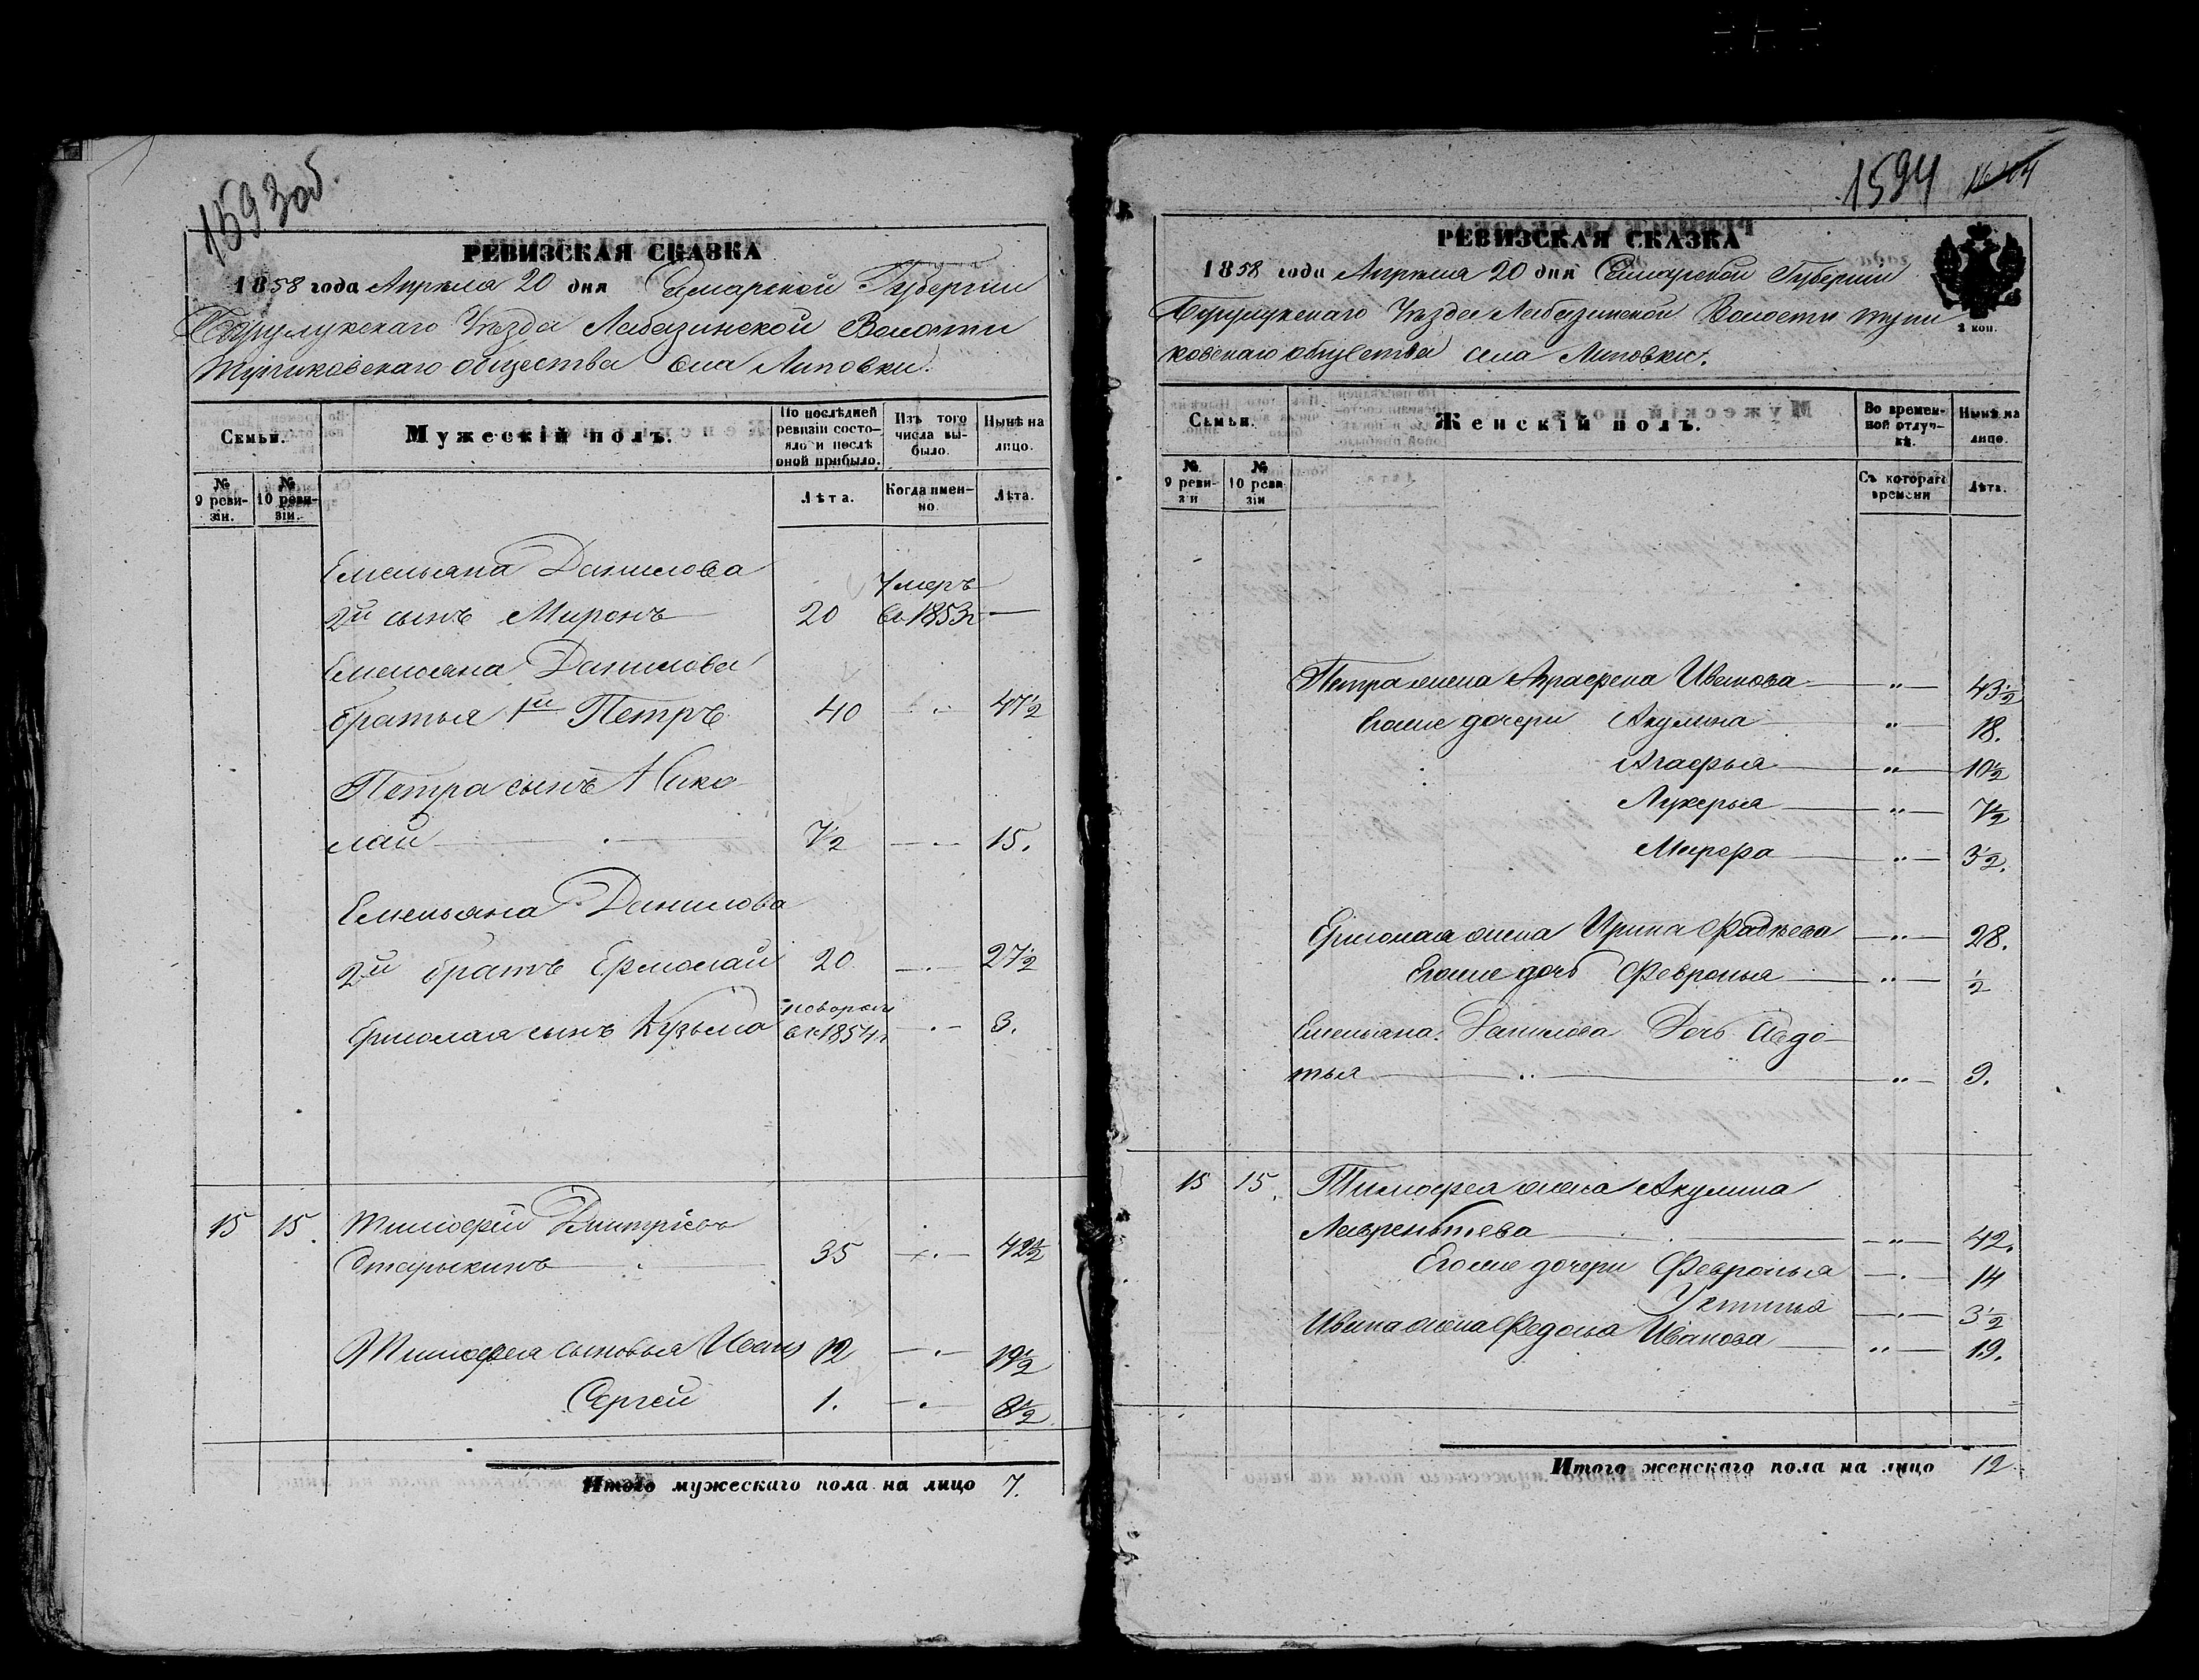 1593об.
РЕВИЗСКАЯ СКАЗКА
1858 года Апрѣля 20 дня Самарской Губерніи
Бузулукскаго Уѣзда Лабазинской Волости
общества села Липовки.
Семьи.
Мужескій полъ.
По послѣдней ревизіи состояло и послѣ оной прибыло.
Изъ того числа выбыло.
Нынѣ на лицо.
№ 9 ревизіи.
№ 10 ревизіи.
Лѣта.
Когда именно.
Лѣта.
Емельяна Данилова
2й сынъ Миронъ 20 Умеръ въ 1853г —
Емельяна Данилова
братья 1й Петръ 40 47½
Петра сынъ Нико-
лай 7½ 15.
Емельяна Данилова
2й братъ Ермолай 20 27½
Ермолая сынъ Кузьма новорож въ 1854г 3.
15 15. Тимофей Дмитріевъ
Старыкинъ 35 42½
Тимофея сыновья Иванъ 12 19½
Сергей 1. 8½
Итого мужескаго пола на лицо 7.
1594
РЕВИЗСКАЯ СКАЗКА
1858 года Апрѣля 20 дня Самарской Губерніи
Бузулукскаго Уѣзда Лабазинской Волости
общества села Липовки.
2 коп.
Семьи.
Женскій полъ.
Во временной отлучкѣ.
Нынѣ на лицо.
№ 9 ревизіи
№ 10 ревизіи
Съ котораго времени
Лѣта.
Петра жена Аграфена Иванова — " — 43½
Его же дочери Акулина — " — 18.
Агафья — " — 10½
Лукерья — " — 7½
— " — 3½.
Ермолая жена Ирина Фадѣева — " — 28.
Его же дочь Февронья — " — ½
Емельяна Данилова Дочь Авдо-
тья — " — 9.
15 15. Тимофея жена Акулина
Лаврентьева — " — 42.
Его же дочери Февронья — " — 14
Устинья — " — 3½
Ивана жена Федосья Иванова — " — 19.
Итого женскаго пола на лицо 12